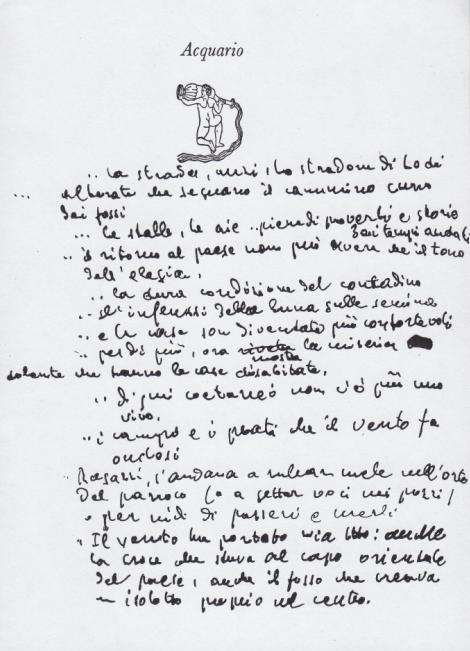 Acquario
.. la strada, anzi, lo stradone di Lodi
... alberate che segnano il cammino curvo
dei fossi
... le stalle, le aie .. piene di proverbi e storie
dei tempi andati
.. il ritorno al paese non può avere che il tono
dell'elegia.
.. la dura condizione del contadino
.. gl'influssi della luna sulle semine
.. e le case son diventate più confortevoli
.. perdi più, ora la miseria
mostra
solante che hanno le case disabitate.
.. Di miei coetanei non c'è più uno
vivo.
.. i campi e i prati che il vento fa
ondosi
Ragazzi, s'andava a rubar mele nell'orto
Del parroco (o a gettar voci nei pozzi)
o per nidi di passeri e merli
.. Il vento ha portato via tutto: anche
la croce che stava al capo orientale
del paese, anche il fosso che creava
un isolotto proprio nel centro.